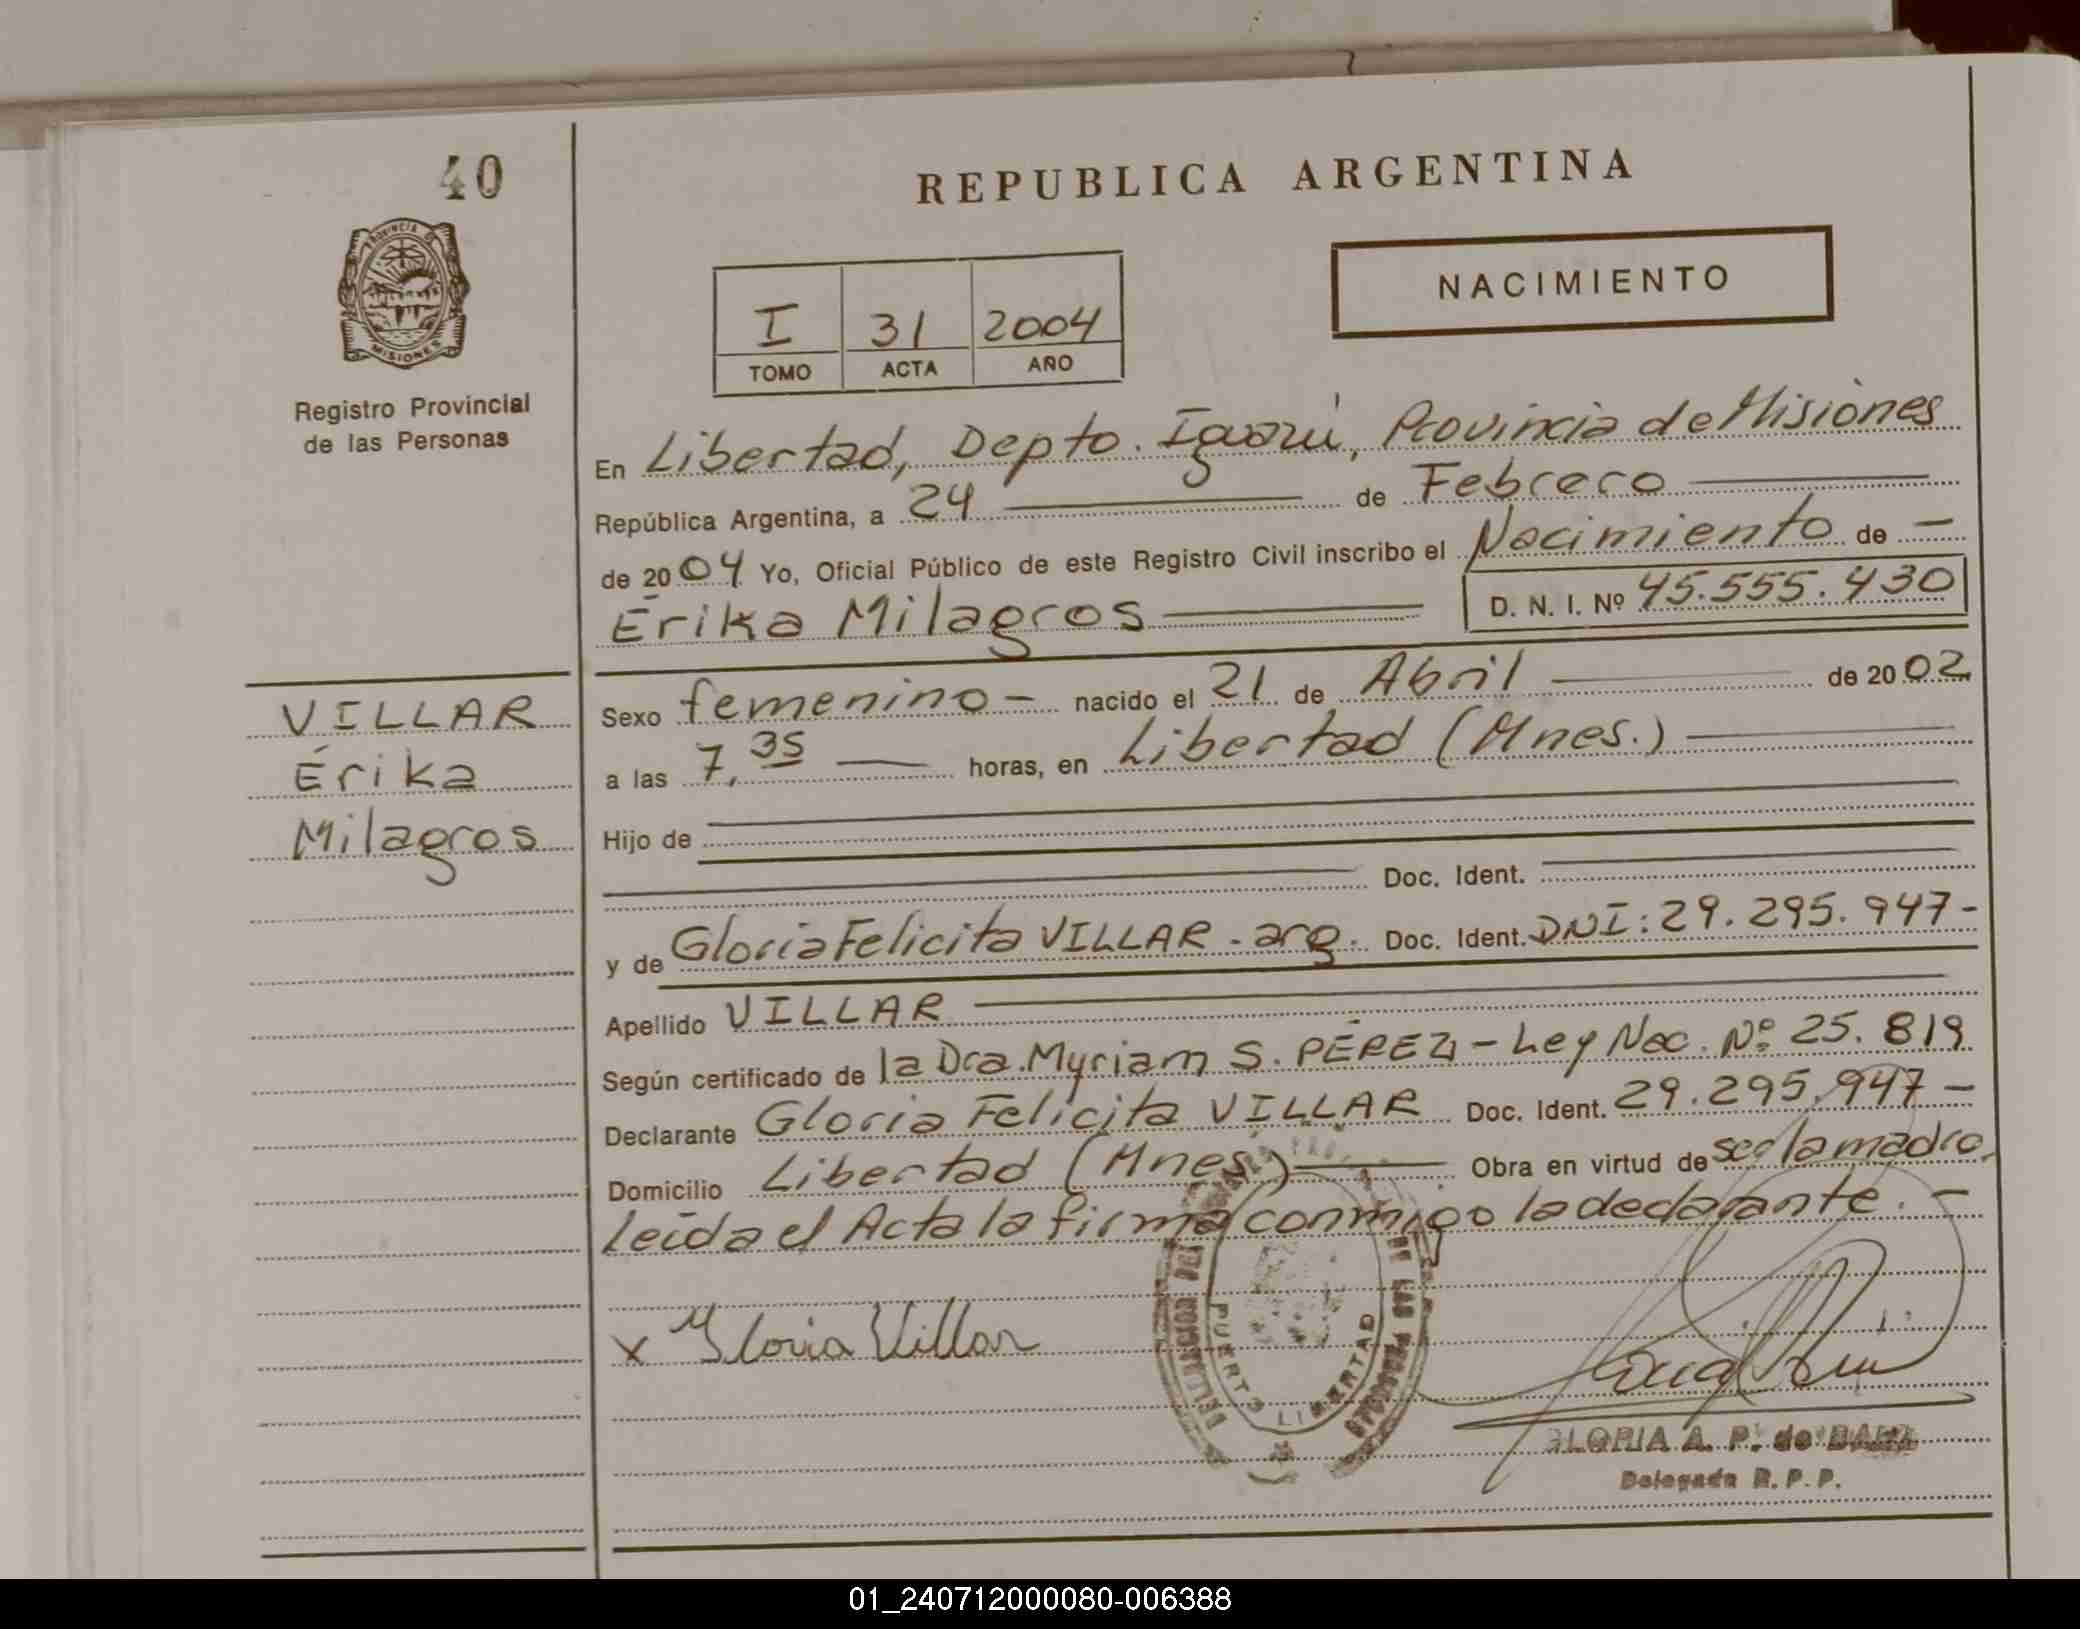 40
REPUBLICA ARGENTINA
PROVINCIA DE
MISIONES
NACIMIENTO
I 31 2004
TOMO ACTA AÑO
Registro Provincial
de las Personas
En Libertad, Depto. Iguazú, Provincia de Misiones
República Argentina, a 24 de Febrero
de 2004 Yo, Oficial Público de este Registro Civil inscribo el Nacimiento de —
Érika Milagros D. N. I. Nº 45.555.430
VILLAR
Érika
Milagros
Sexo femenino - nacido el 21 de Abril de 2002
a las 7,35 horas, en Libertad (Mnes.)
Hijo de
Doc. Ident.
y de Gloria Felicita VILLAR - arg. Doc. Ident. DNI: 29.295.947-
Apellido VILLAR
Según certificado de la Dra. Myriam S. PÉREZ - Ley Nac. Nº 25.819
Declarante Gloria Felicita VILLAR Doc. Ident. 29.295.947-
Domicilio Libertad (Mnes.) Obra en virtud de ser la madre.
Leída el Acta la firma conmigo la declarante. -
x Gloria Villar
PUERTO LIBERTAD
GLORIA A. P. de
Delegada R. P. P.
01_240712000080-006388